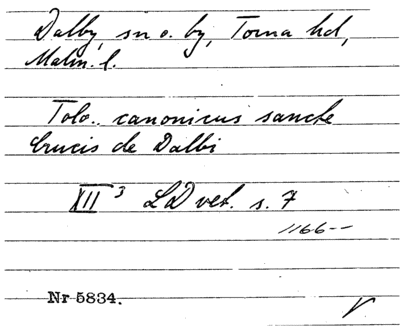 Dalby, sn o. by, Torna hd,
Malm. l.
Tolo.. canonicus sancte
Crucis de Dalbi
XII 3 LD vet. s. 7
1166--
Nr 5834.
V